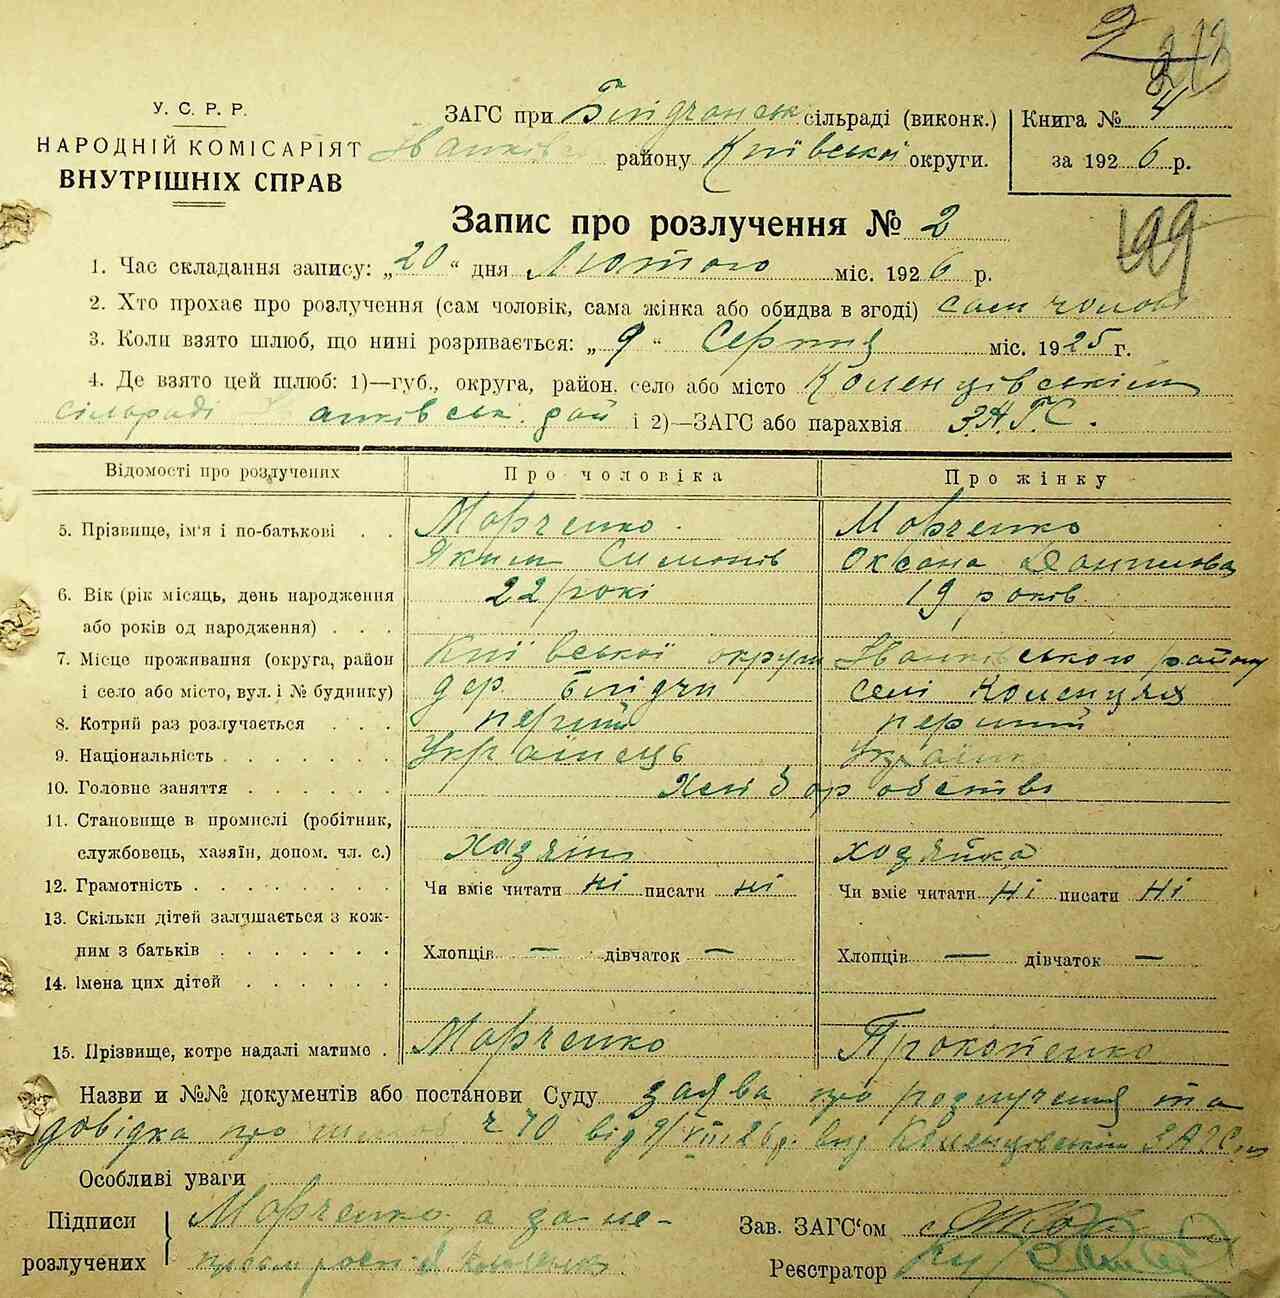 2
У. С. Р. Р.
НАРОДНІЙ КОМІСАРІЯТ
ВНУТРІШНІХ СПРАВ
ЗАГС при Блідчанськ сільраді (виконк.)
Іванківс району Київської округи.
Книга № 4
за 1926 р.
Запис про розлучення № 2
199
1. Час складання запису: „20“ дня Лютого міс. 1926 р.
2. Хто прохає про розлучення (сам чоловік, сама жінка або обидва в згоді) сам чолов
3. Коли взято шлюб, що нині розривається: „9“ Серпня міс. 1925 г.
4. Де взято цей шлюб: 1)—губ., округа, район. село або місто Коленцівськім
сільраді Іванківськ. рай і 2)—ЗАГС або парахвія З.А.Г.С.
Відомості про розлучених
Про чоловіка
Про жінку
5. Прізвище, ім'я і по-батькові . .
Марченко
Яким Симонів
Марченко
Оксана Данилова
6. Вік (рік місяць, день народження
або років од народження) . . .
22 років
19 років
7. Місце проживання (округа, район
і село або місто, вул. і № будинку)
Київської округи Іванківського району
дер. Блідчи
селі Коленцях
8. Котрий раз розлучається . . .
перший
перший
9. Національність . . . . . . .
Українець
Українк
10. Головне заняття . . . . . .
Хліборобство
11. Становище в промислі (робітник,
службовець, хазяїн, допом. чл. с.)
хазяїн
хозяйка
12. Грамотність . . . . . . . .
Чи вміє читати ні писати ні
Чи вміє читати ні писати ні
13. Скільки дітей залишається з кож-
ним з батьків . . . . . . .
Хлопців — дівчаток —
Хлопців — дівчаток —
14. Імена цих дітей . . . . . .
15. Прізвище, котре надалі матиме .
Марченко
Прокопенко
Назви и №№ документів або постанови Суду заява про розлучення та
довідка про шлюб ч 70 від 9/VIII 26 р. вид Коленцівськім ЗАГС
Особливі уваги
Підписи
розлучених
Марченко а за не-
Зав. ЗАГС'ом
Реєстратор